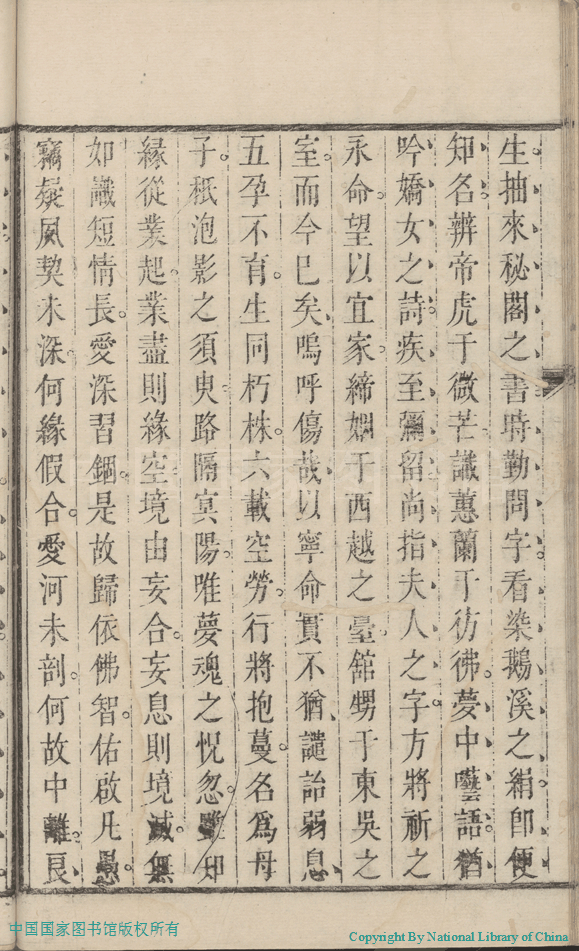 生抽來秘閣之書時勤問字看染鵝溪之絹卽便
知名辨帝虎于微芒識蕙蘭于彷彿夢中囈語猶
吟嬌女之詩疾至彌留尚指夫人之字方將祈之
永命望以宜家締姻于西越之臺舘甥于東吳之
室而今已矣嗚呼傷哉以寧命實不猶譴詒弱息
五孕不育生同朽株六載空勞行將抱蔓名爲母
子秪泡影之須臾路隔冥陽唯夢魂之怳忽雖知
緣從業起業盡則緣空境由妄合妄息則境滅無
如識短情長愛深習錮是故歸依佛智佑啟凡愚
竊疑風契未深何緣假合愛河未剖何故中離良
中国国家图书馆版权所有
Copyright By National Library of China